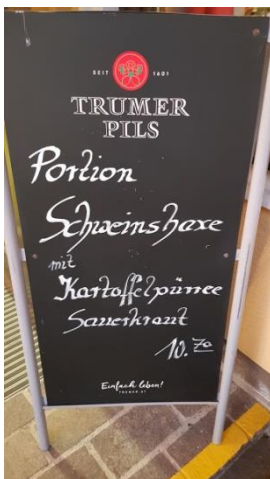 SEIT 1601
TRUMER
PILS
Portion
Schweinshaxe
mit
Kartoffelpürree
Sauerkraut
10.70
Einfach leben!
TRUMER.AT